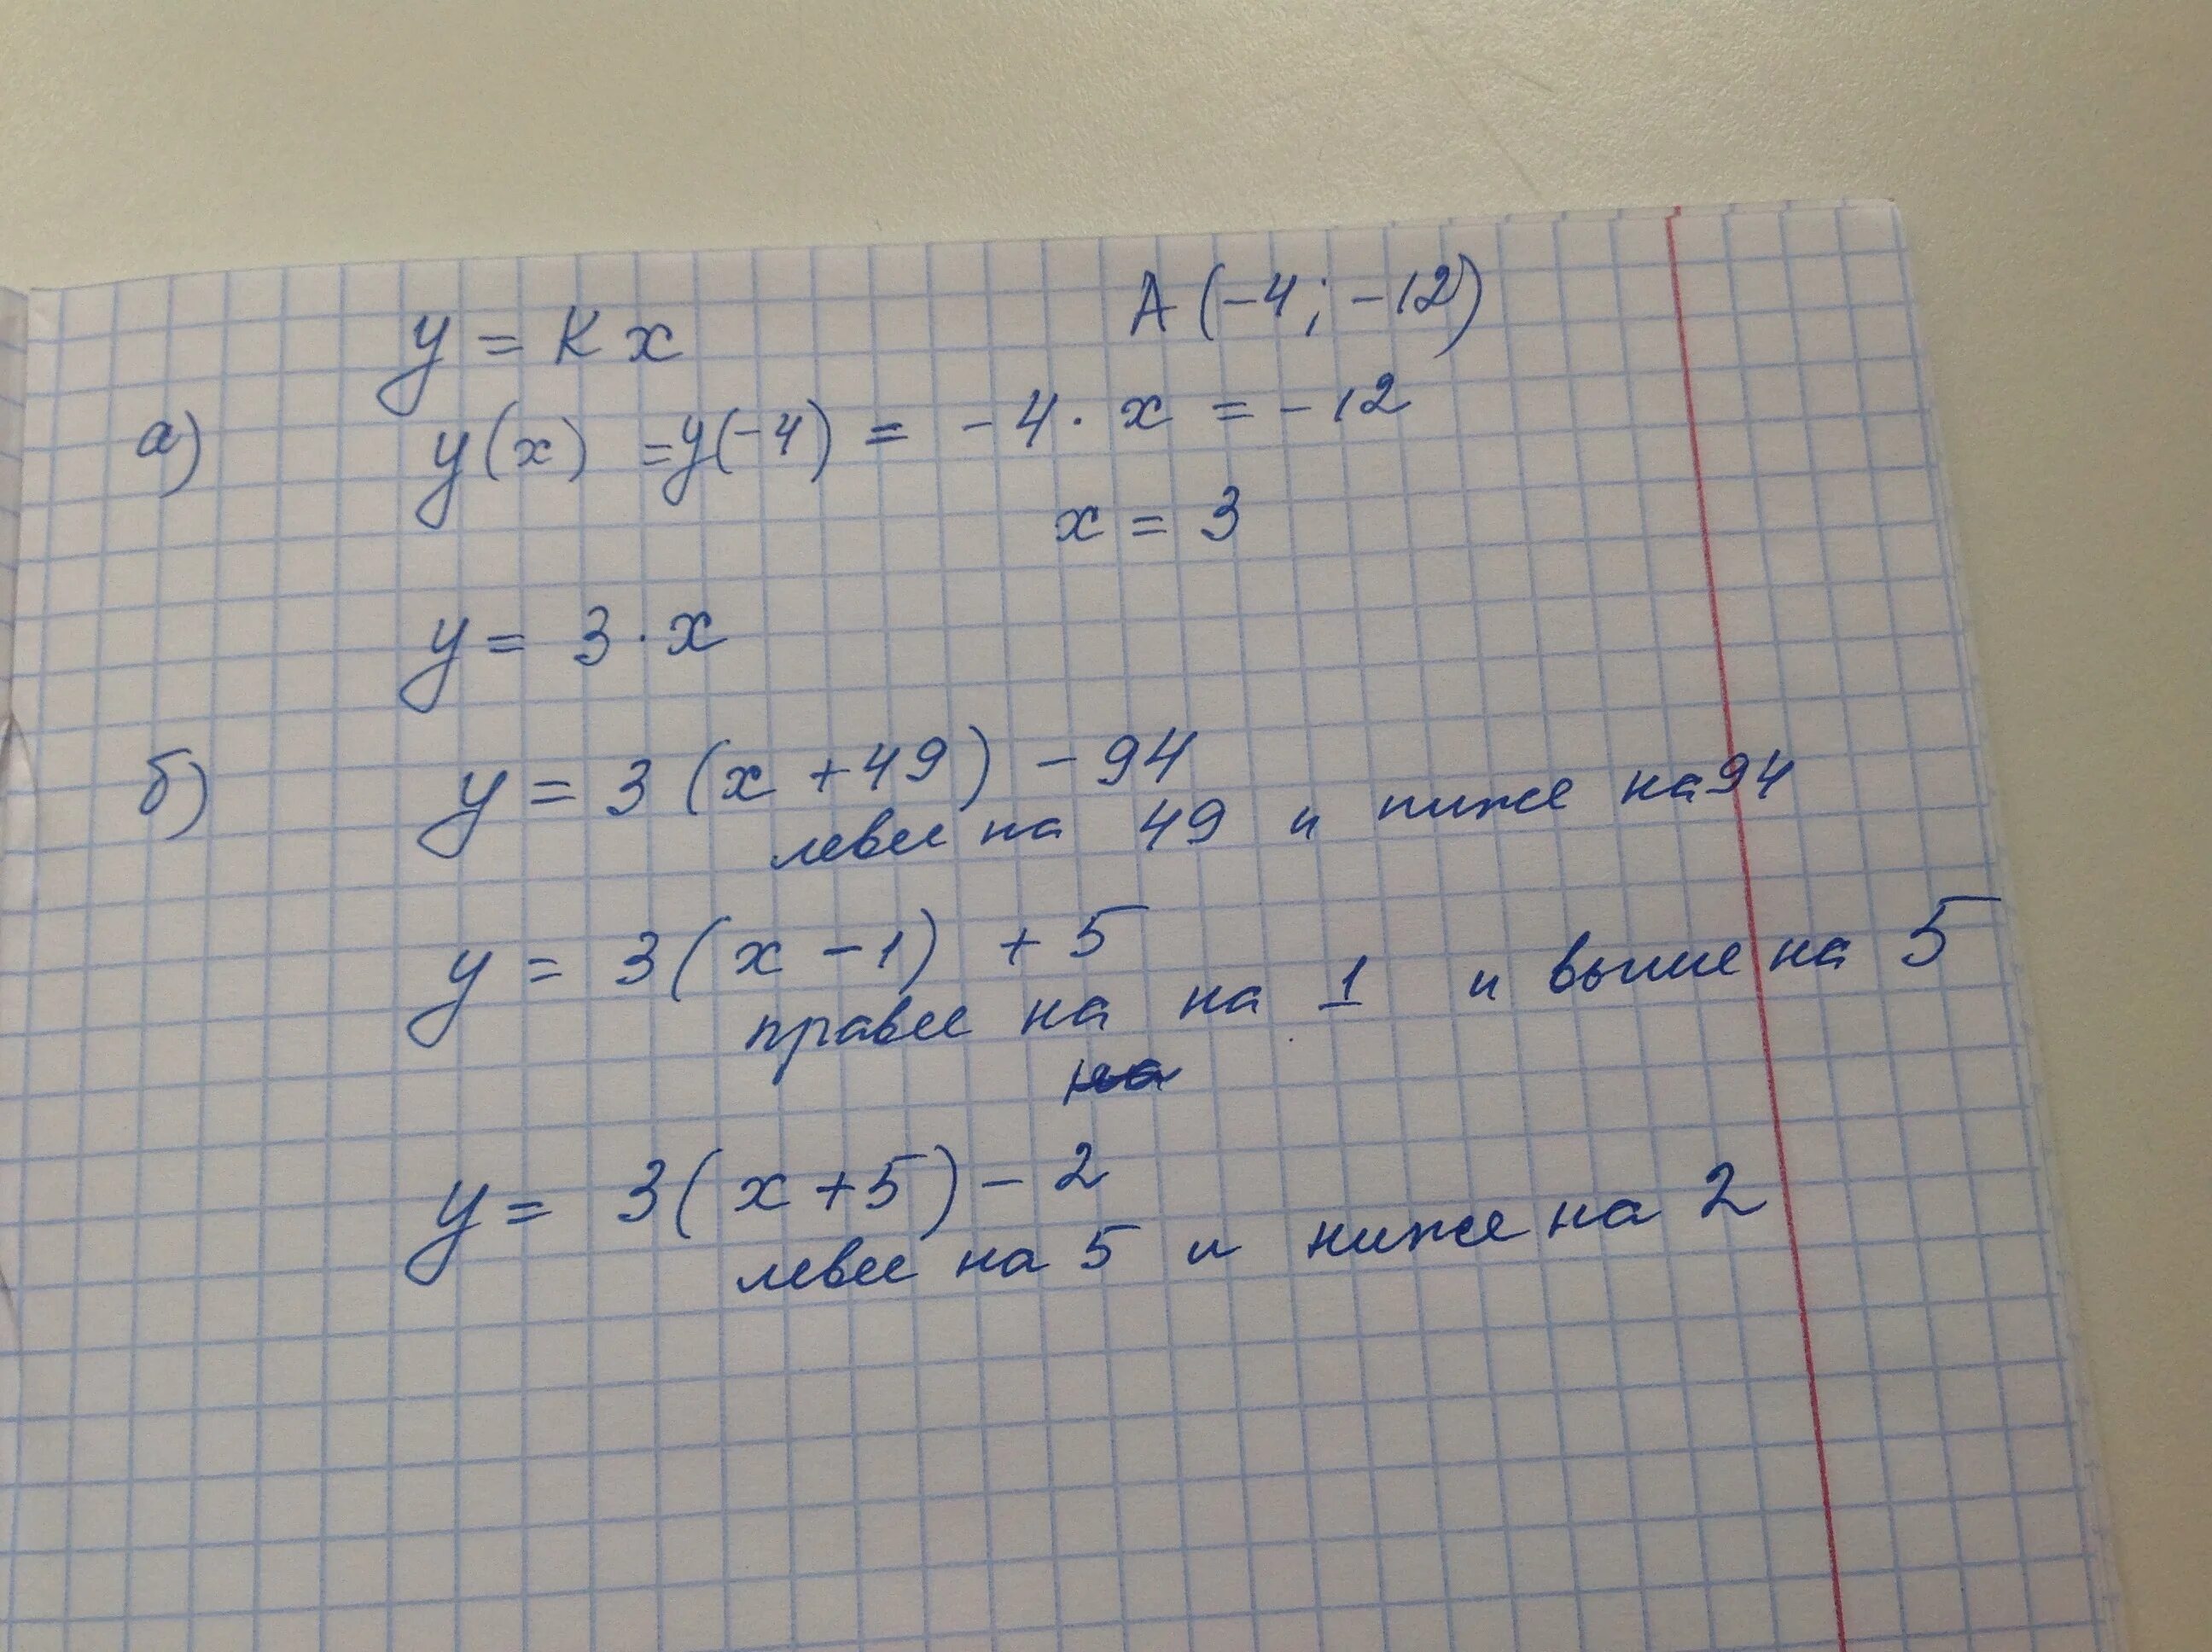 y = Kx A(-4; -12)
а) y(x) = y(-4) = -4 · x = -12
x = 3
y = 3 · x
б) y = 3(x + 49) - 94
левее на 49 и ниже на 94
y = 3(x - 1) + 5
правее на на 1 и выше на 5
на
y = 3(x + 5) - 2
левее на 5 и ниже на 2